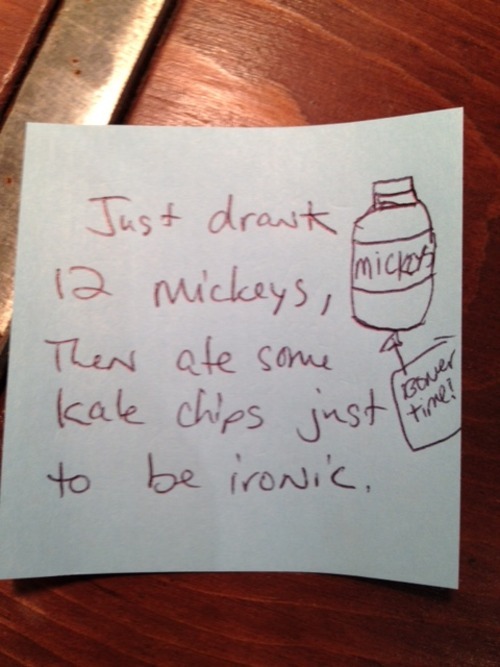 Just drank
12 Mickeys,
Then ate some
kale chips just
to be ironic.
mickeys
Boner
time!